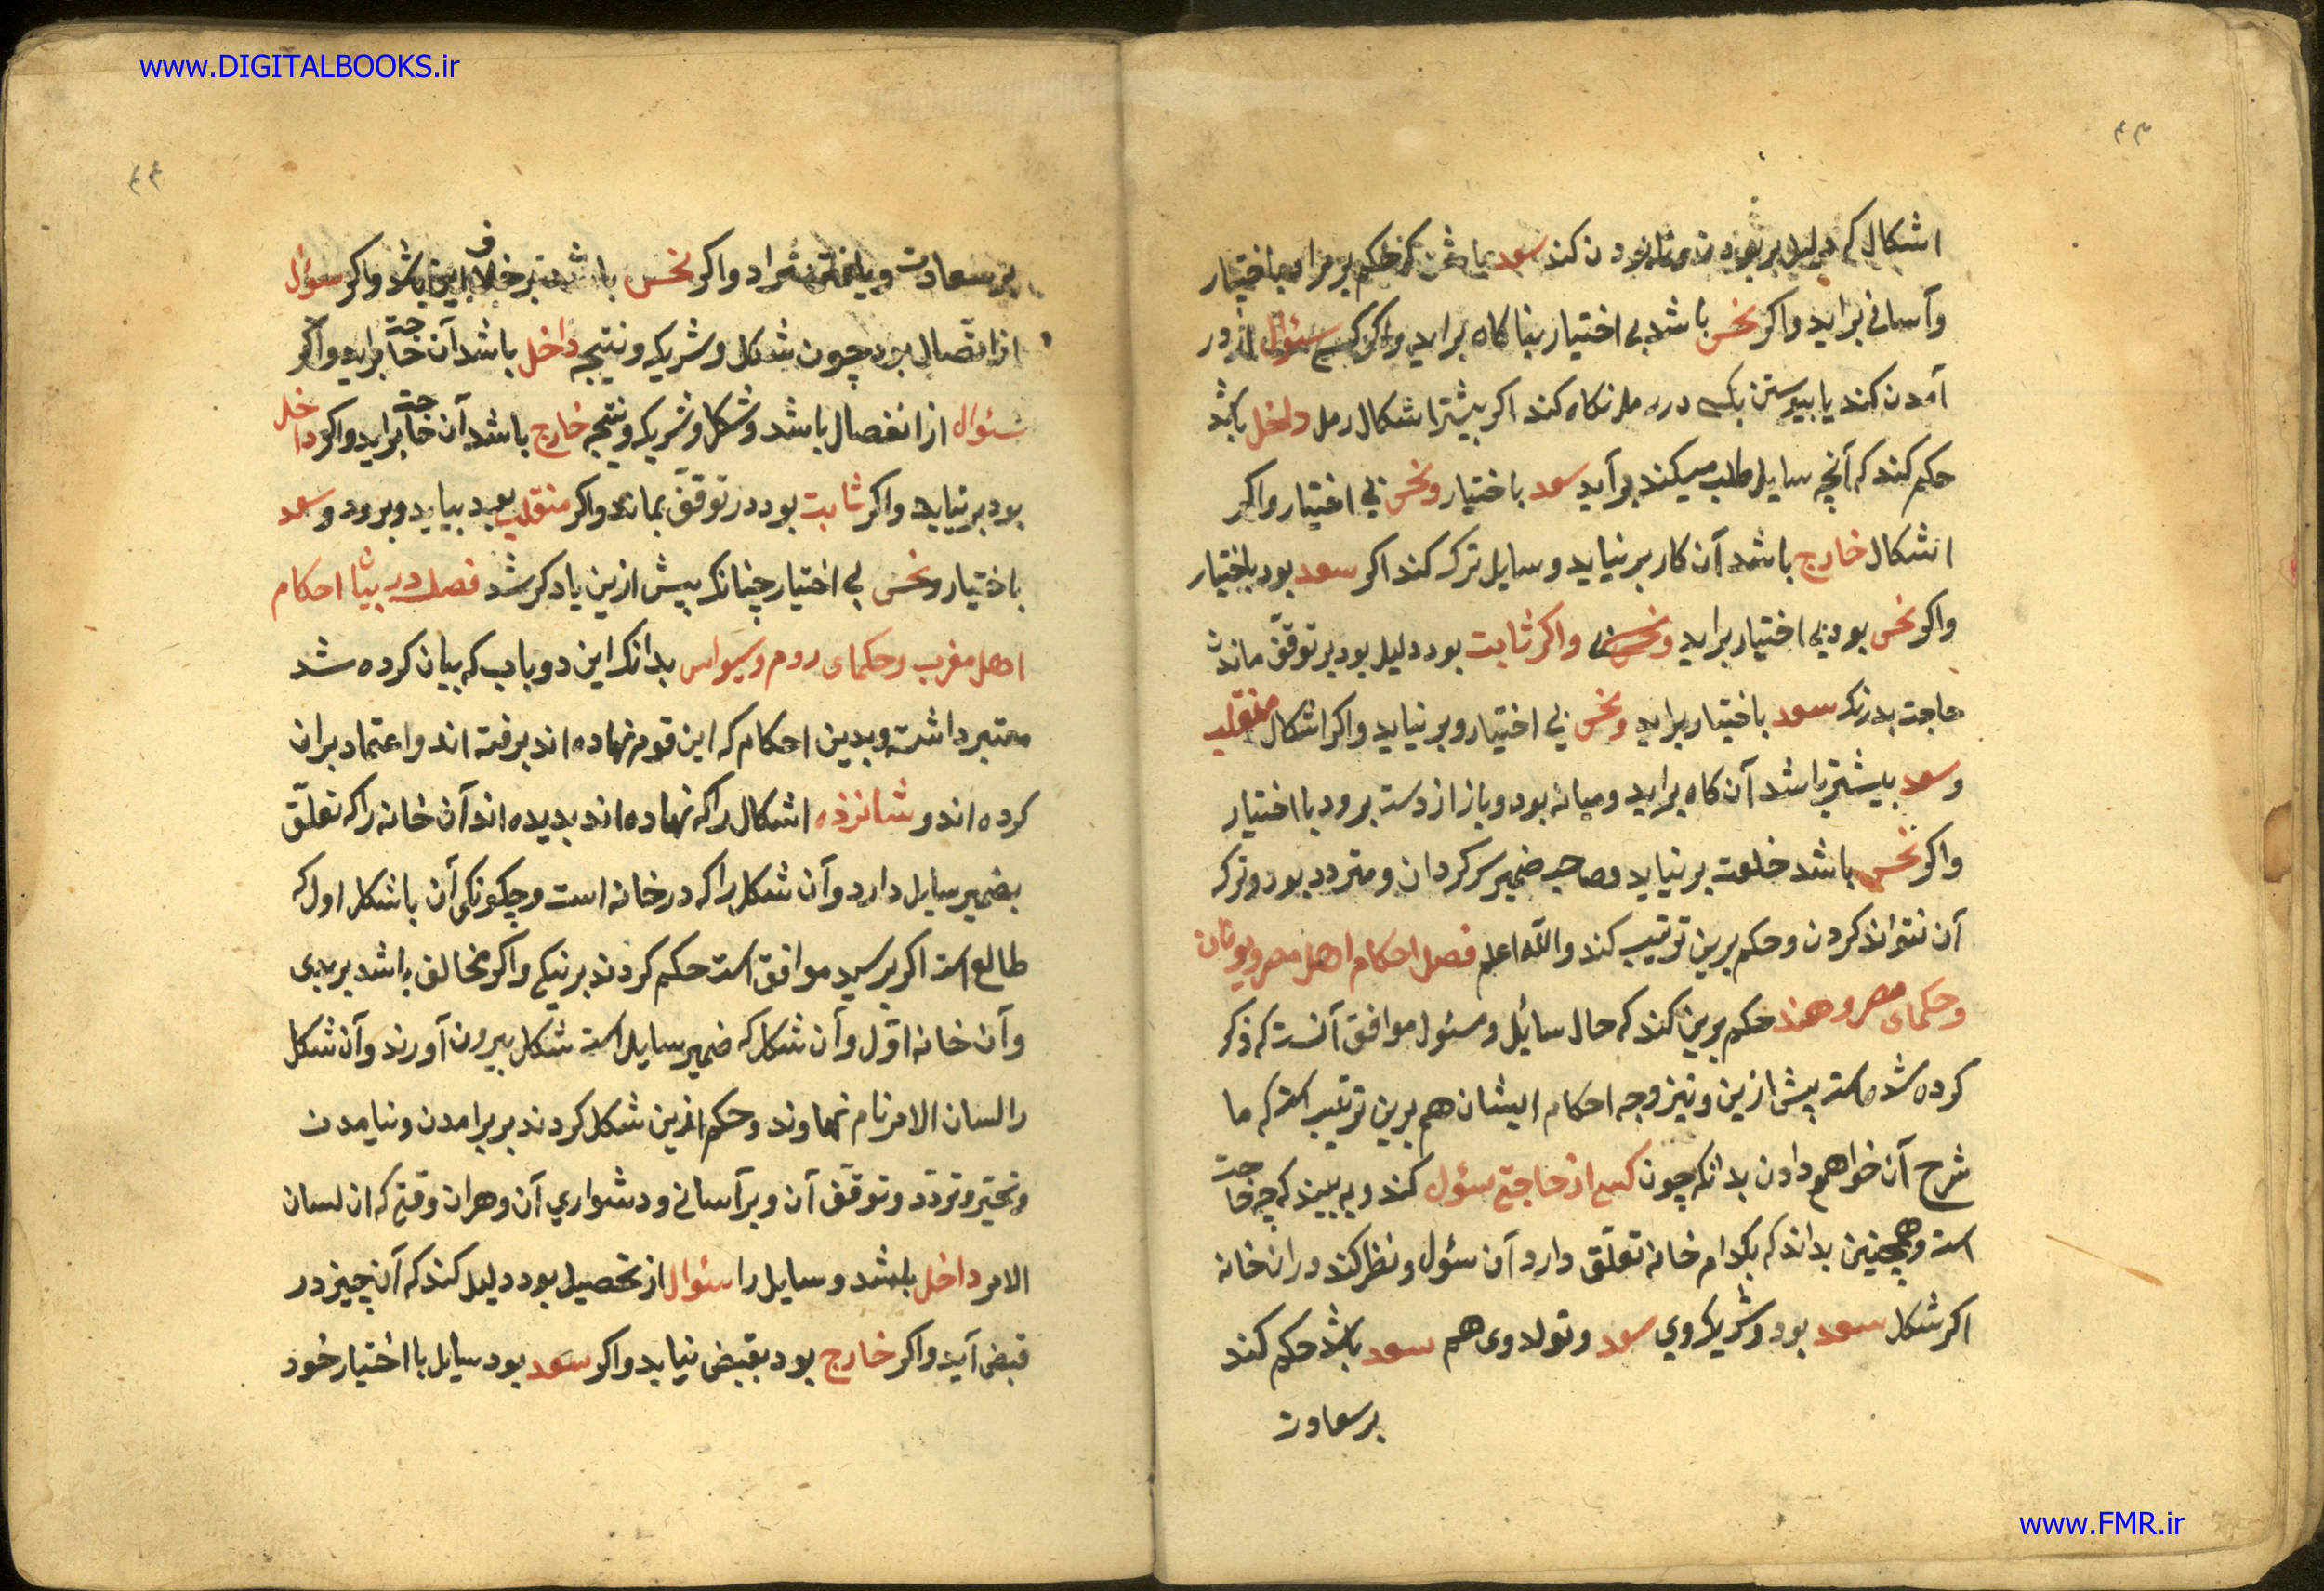 www.DIGITALBOOKS.ir
۴۳
اشکال که دلیل بر بودن کند سعد باختیار
وآسانی براید واکر نحس باشد بی اختیار بناکاه براید واکر کسی سئوال از در
آمدن کند یا بپیوستن بکسی در رمل نکاه کند اکر بیشتر اشکال رمل داخل باشد
حکم کند که آنچه سایل طلب میکند برآید سعد باختیار ونحس بی اختیار واکر
اشکال خارج باشد آن کار برنیاید وسایل ترک کند اکر سعد بود باختیار
واکر نحس بود بی اختیار براید واکر ثابت بود دلیل بود بر توقّف ماندن
حاجت بدرنک سعد باختیار براید ونحس بی اختیار وبرنیاید واکر اشکال منقلب
وسعد بیشتر باشد آن کاه براید ومیانه بود وباز از دست برود با اختیار
واکر نحس باشد برنیاید وصاحب ضمیر سرکردان ومتردد بود وترک
آن نتواند کردن وحکم برین ترتیب کند والله اعلم فصل احکام اهل مصر ویونان
وحکمای مصر وهند حکم برین کند که حال سائل ومسئول موافق آنست که ذکر
کرده شده است پیش ازین ونیز وجه احکام ایشان هم برین ترتیب است که ما
شرح آن خواهم دادن بدانکه چون کسی از حاجتی سئول کند وبه بیند که چه حاجت
است وهمچنین بداند که بکدام خانه تعلّق دارد آن سئول ونظر کند در ان خانه
اکر شکل سعد بود وشریک وی سعد وتولد وی هم سعد باشد حکم کند
بر سعادت
۴۴
بر سعادت واکر نحس باشد بر خلاف این باشد واکر سؤل
از اتّصال بود چون شکل وشریک ونتیجه داخل باشد آن حاجت براید واکر
سئوال از انفصال باشد وشکل وشریک ونتیجه خارج باشد آن حاجت براید واکر داخل
بود برنیاید واکر ثابت بود در توقّف بماند واکر منقلب بود بیاید وبرود وسعد
باختیار ونحس بی اختیار چنانک پیش ازین یاد کرده شد فصل در بیان احکام
اهل مغرب وحکمای روم وسیواس بدانک این دو باب که بیان کرده شد
معتبر داشته وبدین احکام که این قوم نهاده اند برفته اند واعتماد بران
کرده اند وشانزده اشکال را که نهاده اند بدیده اند آن خانه را که تعلّق
بضمیر سایل دارد وآن شکل را که در خانه است وچکونکی آن باشکل اول که
طالع است اکر موافق است حکم کردند بر نیکی واکر مخالف باشد بر بدی
وآن خانه اوّل وآن شکل که ضمیر سایل است شکل بیرون آورند وآن شکل
را لسان الامر نام نهاوند وحکم ازین شکل کردند بر برامدن ونیامدن
وتحیّر وتردّد وتوقّف آن وبر آسانی ودشواری آن وهران وقتی که ان لسان
الامر داخل باشد وسایل را سئوال از تحصیل بود دلیل کند که آن چیز در
قبض آید واکر خارج بود بقبض نیاید واکر سعد بود سایل با اختیار خود
www.FMR.ir